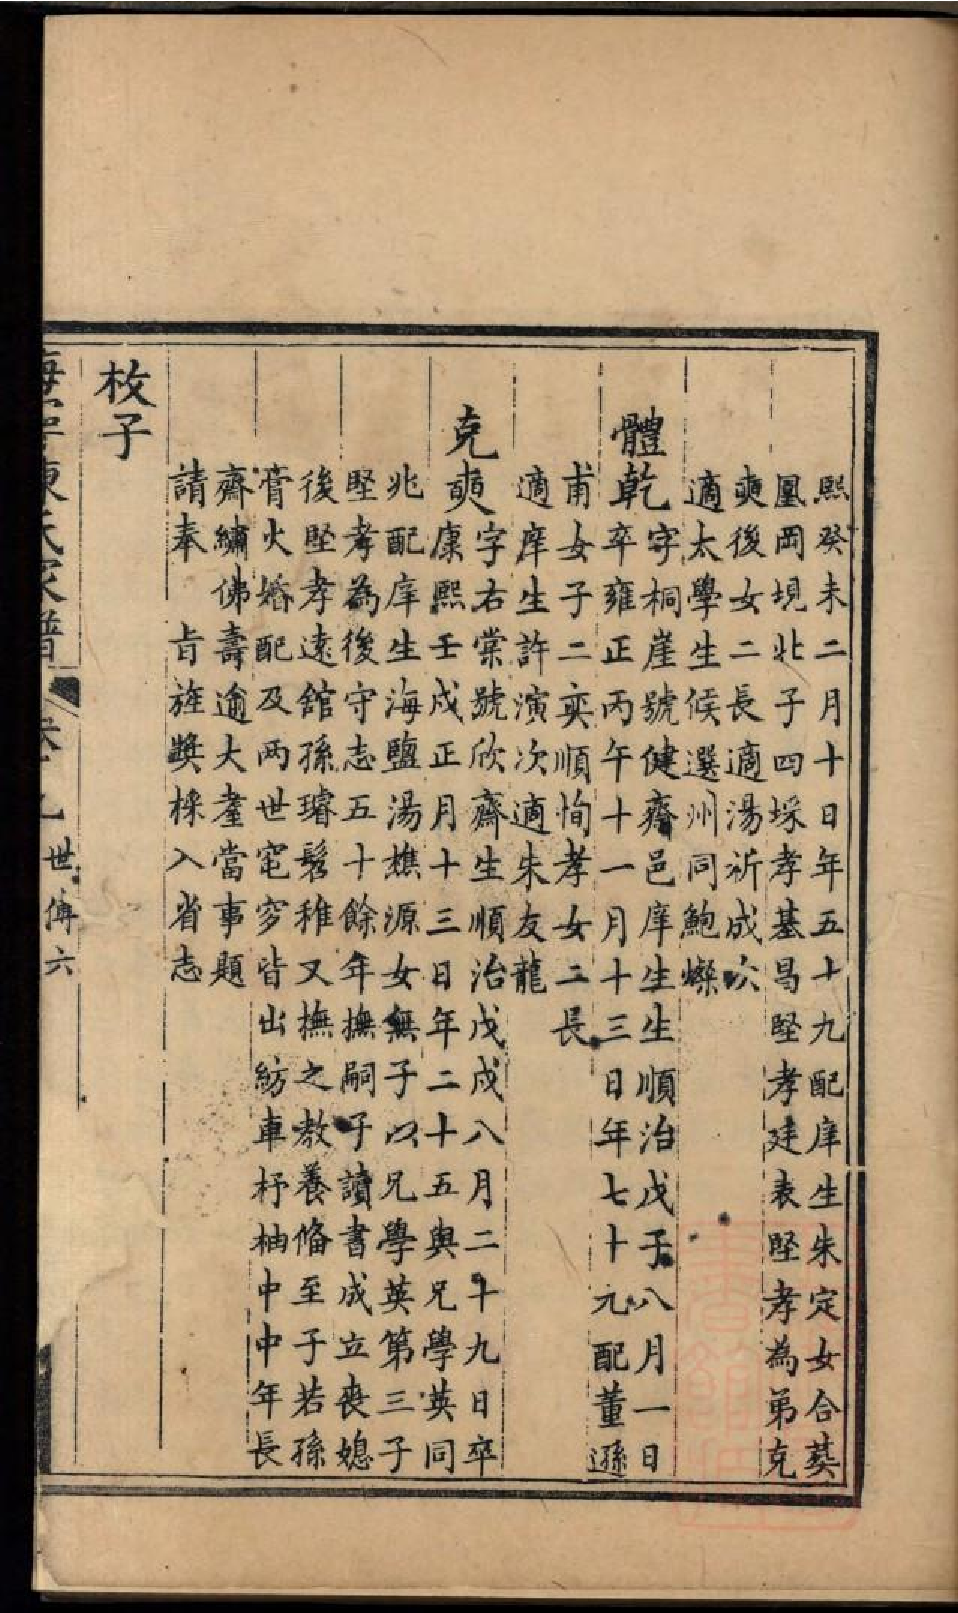 熙癸未二月十日年五十九配庠生朱定女合葬
鳳岡垷北子四埰孝基昺堅孝建表堅孝為弟克
奭後女二長適湯沂成次
適太學生候選州同鮑爍
體乾字桐崖號健齋邑庠生生順治戊子八月一日
卒雍正丙午十一月十三日年七十元配董遜
甫女子二奕順恂孝女二長
適庠生許演次適朱友龍
克奭字右棠號欣齋生順治戊戌八月二十九日卒
康熙壬戌正月十三日年二十五與兄學英同
兆配庠生海鹽湯樵源女無子以兄學英第三子
堅孝為後守志五十餘年撫嗣子讀書成立喪媳
後堅孝遠館孫璿髫稚又撫之教養俻至子若孫
膏火婚配及两世窀穸皆出紡車杼柚中中年長
齋繡佛壽逾大耋當事題
請奉旨旌獎採入省志
枚子
海寧陳氏家譜 卷 世傳六